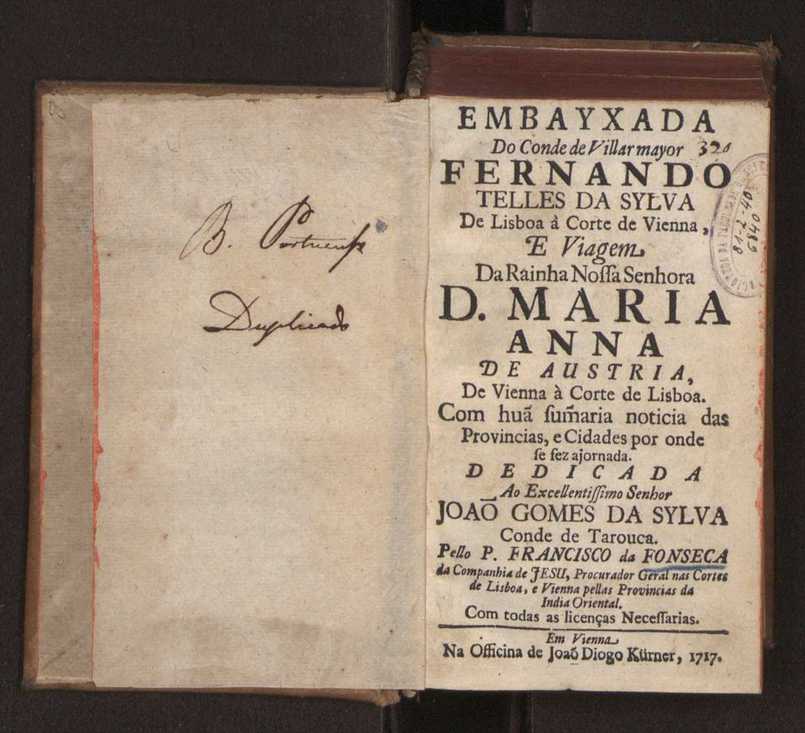 B. Portuens
Duplicado
EMBAYXADA
Do Conde de Villarmayor 320
FERNANDO
TELLES DA SYLVA
De Lisboa à Corte de Vienna,
E Viagem
Da Rainha Noſſa Senhora
D. MARIA
ANNA
DE AUSTRIA,
De Vienna à Corte de Lisboa.
Com huã ſum̃aria noticia das
Provincias, e Cidades por onde
ſe fez ajornada.
DEDICADA
Ao Excellentiſſimo Senhor
JOAÕ GOMES DA SYLVA
Conde de Tarouca.
Pello P. FRANCISCO da FONSECA
da Companhia de JESU, Procurador Geral nas Cortes
de Lisboa, e Vienna pellas Provincias da
India Oriental.
Com todas as licenças Neceſſarias.
Em Vienna
Na Officina de Joaõ Diogo Kürner, 1717.
81-2-40
6840